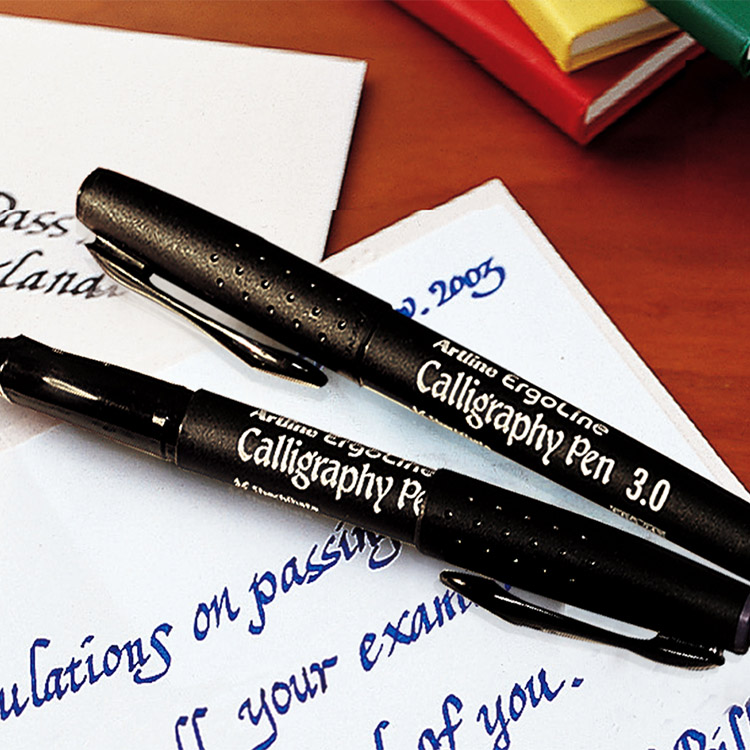 Pass
land
2003
Artline ErgoLine
Calligraphy Pen 3.0
Artline ErgoLine
Calligraphy Pe
ulations on passing
ll your exam
of you.